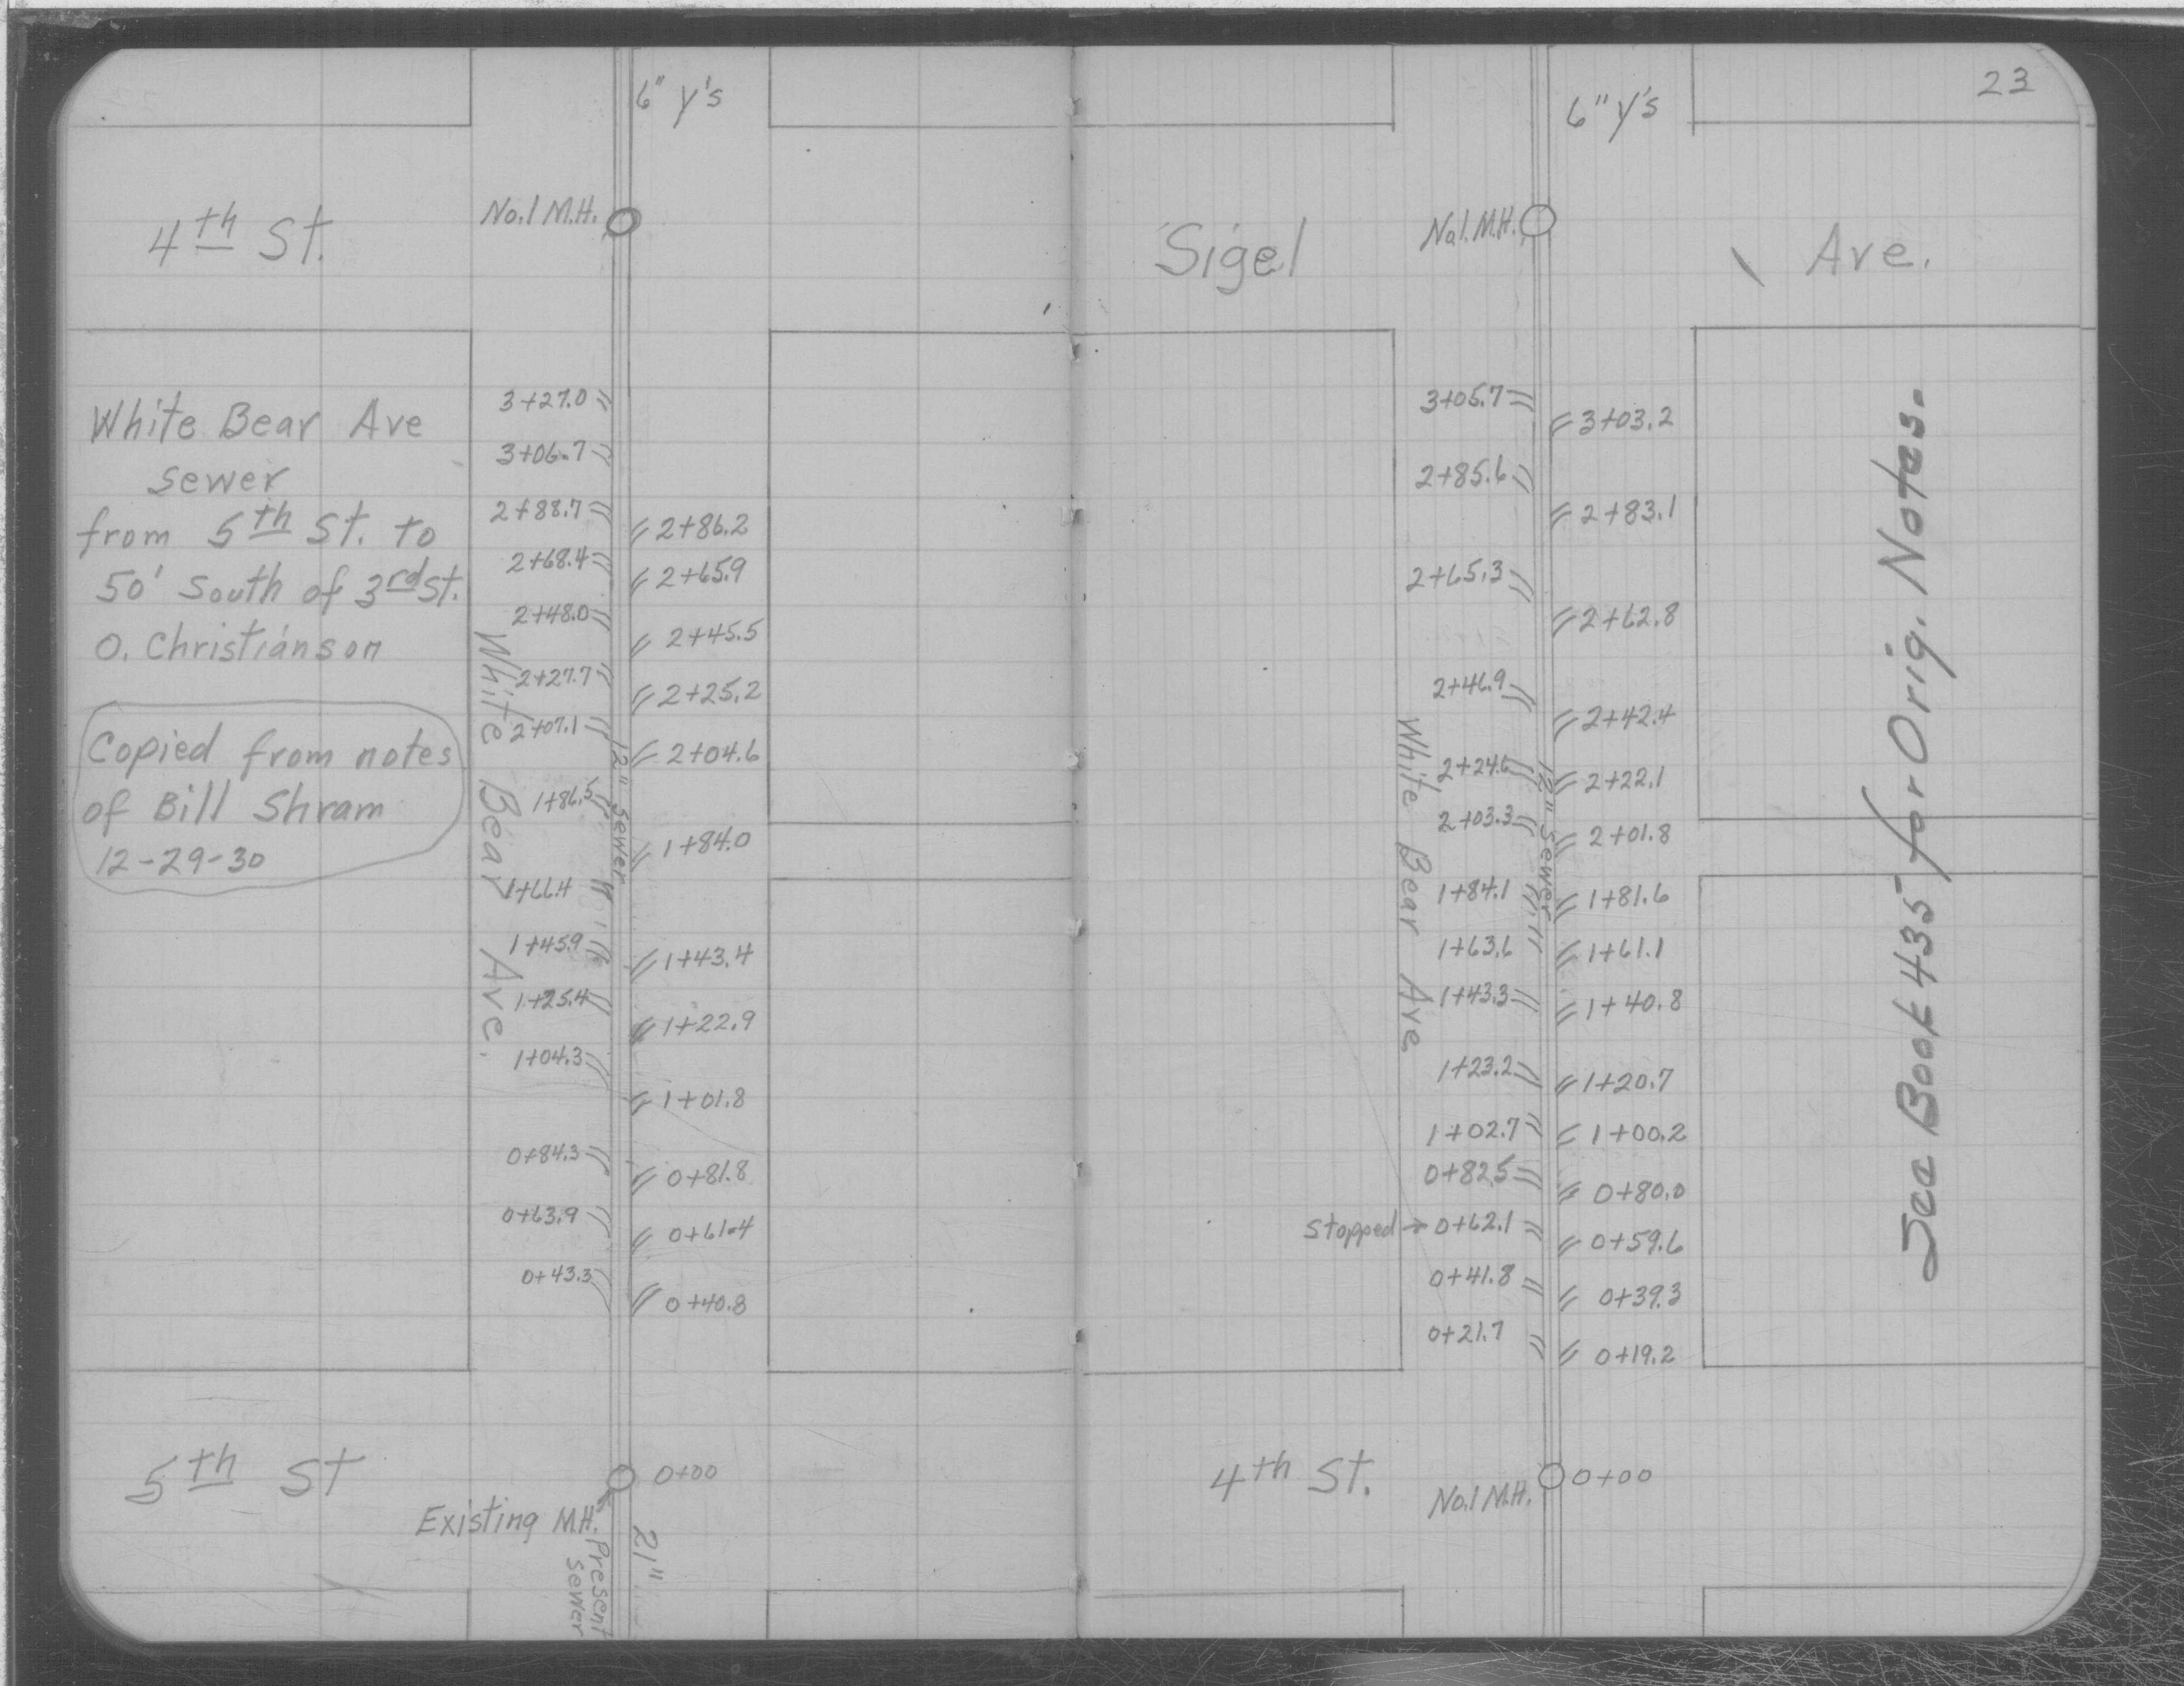 6" Y's
4th St.
No.1 M.H.
White Bear Ave
sewer
from 5th St. to
50' South of 3rd St.
O. Christianson
Copied from notes
of Bill Shram
12-29-30
3+27.0
3+06.7
2+88.7
2+86.2
2+68.4
2+65.9
2+48.0
2+45.5
2+27.7
2+25.2
2+07.1
2+04.6
1+86.5
1+84.0
1+66.4
1+45.9
1+43.4
1+25.4
1+22.9
1+04.3
1+01.8
0+84.3
0+81.8
0+63.9
0+61.4
0+43.3
0+40.8
White Bear Ave.
12" sewer
5th St
0+00
Existing M.H.
Present
sewer
21"
23
6" Y's
Sigel
No.1. M.H.
Ave.
3+05.7
3+03.2
2+85.6
2+83.1
2+65.3
2+62.8
2+46.9
2+42.4
2+24.6
2+22.1
2+03.3
2+01.8
1+84.1
1+81.6
1+63.6
1+61.1
1+43.3
1+40.8
1+23.2
1+20.7
1+02.7
1+00.2
0+82.5
0+80.0
Stopped → 0+62.1
0+59.6
0+41.8
0+39.3
0+21.7
0+19.2
White Bear Ave
12" sewer
See Book 435 for Orig. Notes.
4th St.
No.1 M.H.
0+00